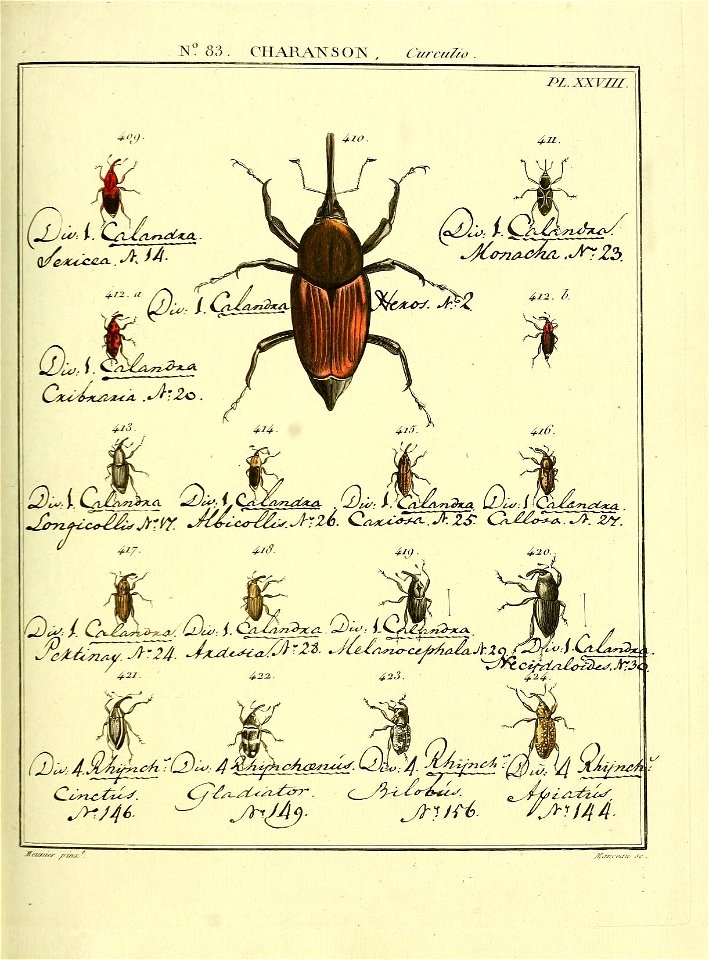 Nº. 83. CHARANSON, Curculio.
PL. XXVIII.
409. 410. 411.
Div: 1. Calandra
Sericea. N. 14.
Div: 1. Calandra
Monacha. Nº 23.
412. a
Div: 1. Calandra Heros. Nº 2
412. b.
Div: 1. Calandra
Cribraria. Nº 20.
413. 414. 415. 416.
Div: 1. Calandra Div: 1 Calandra Div: 1. Calandra Div: 1 Calandra
Longicollis Nº 17. Albicollis. Nº 26. Cariosa. N. 25. Callosa. N. 27.
417. 418. 419. 420.
Div: 1. Calandra. Div: 1. Calandra Div: 1. Calandra
Pertinax. Nº 24. Ardesia. Nº 28. Melanocephala N. 29
Div: 1. Calandra.
Necydaloides. Nº 30.
421. 422. 423. 424.
Div: 4. Rhÿnch: Div: 4 Rhÿnchænus. Div: 4. Rhÿnch: Div: 4 Rhÿnch:
Cinctus. Gladiator. Bilobus. Apiatus.
Nº 146. Nº 149. Nº 156. Nº 144.
Meunier pinx.t